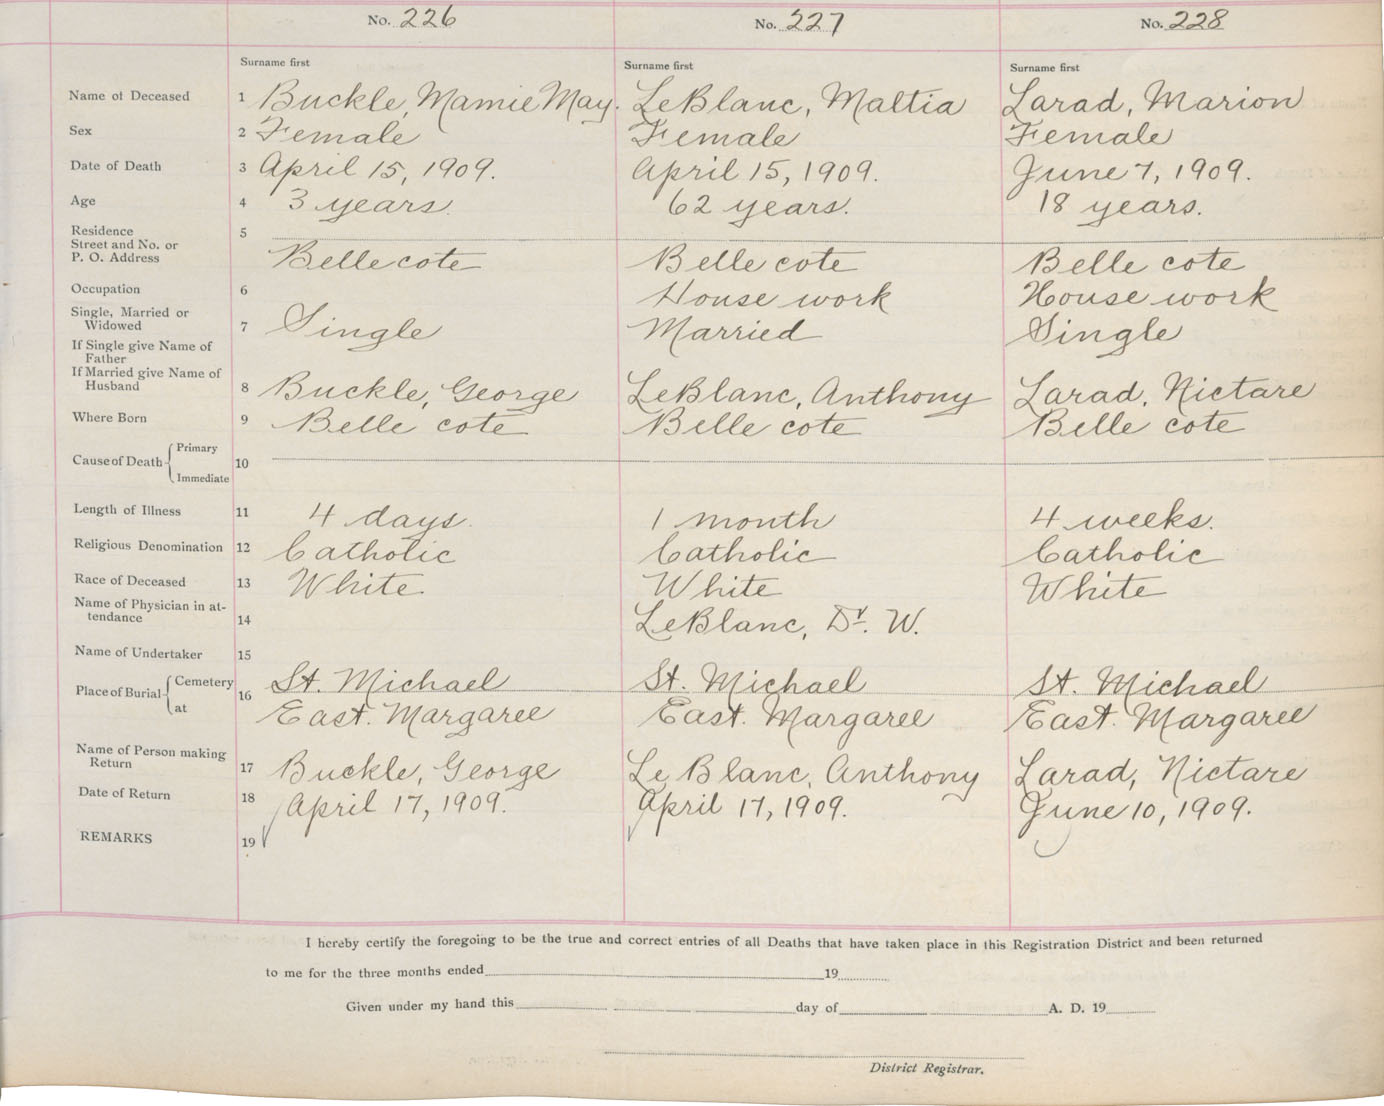 No. 226 No. 227 No. 228
Surname first Surname first Surname first
Name of Deceased 1 Buckle, Mamie May. LeBlanc, Maltia Larad, Marion
Sex 2 Female Female Female
Date of Death 3 April 15, 1909. April 15, 1909. June 7, 1909.
Age 4 3 years. 62 years. 18 years.
Residence 5
Street and No. or
P. O. Address Belle cote Belle cote Belle cote
Occupation 6 House work House work
Single, Married or
Widowed 7 Single Married Single
If Single give Name of
Father
If Married give Name of
Husband 8 Buckle, George LeBlanc, Anthony Larad, Nictare
Where Born 9 Belle cote Belle cote Belle cote
Cause of Death Primary
10
Immediate
Length of Illness 11 4 days. 1 month 4 weeks.
Religious Denomination 12 Catholic Catholic Catholic
Race of Deceased 13 White White White
Name of Physician in at-
tendance 14 LeBlanc, Dr. W.
Name of Undertaker 15
Place of Burial Cemetery 16 St. Michael St. Michael St. Michael
at East. Margaree East. Margaree East. Margaree
Name of Person making
Return 17 Buckle, George Le Blanc, Anthony Larad, Nictare
Date of Return 18 April 17, 1909. April 17, 1909. June 10, 1909.
REMARKS 19
I hereby certify the foregoing to be the true and correct entries of all Deaths that have taken place in this Registration District and been returned
to me for the three months ended 19
Given under my hand this day of A. D. 19
District Registrar.